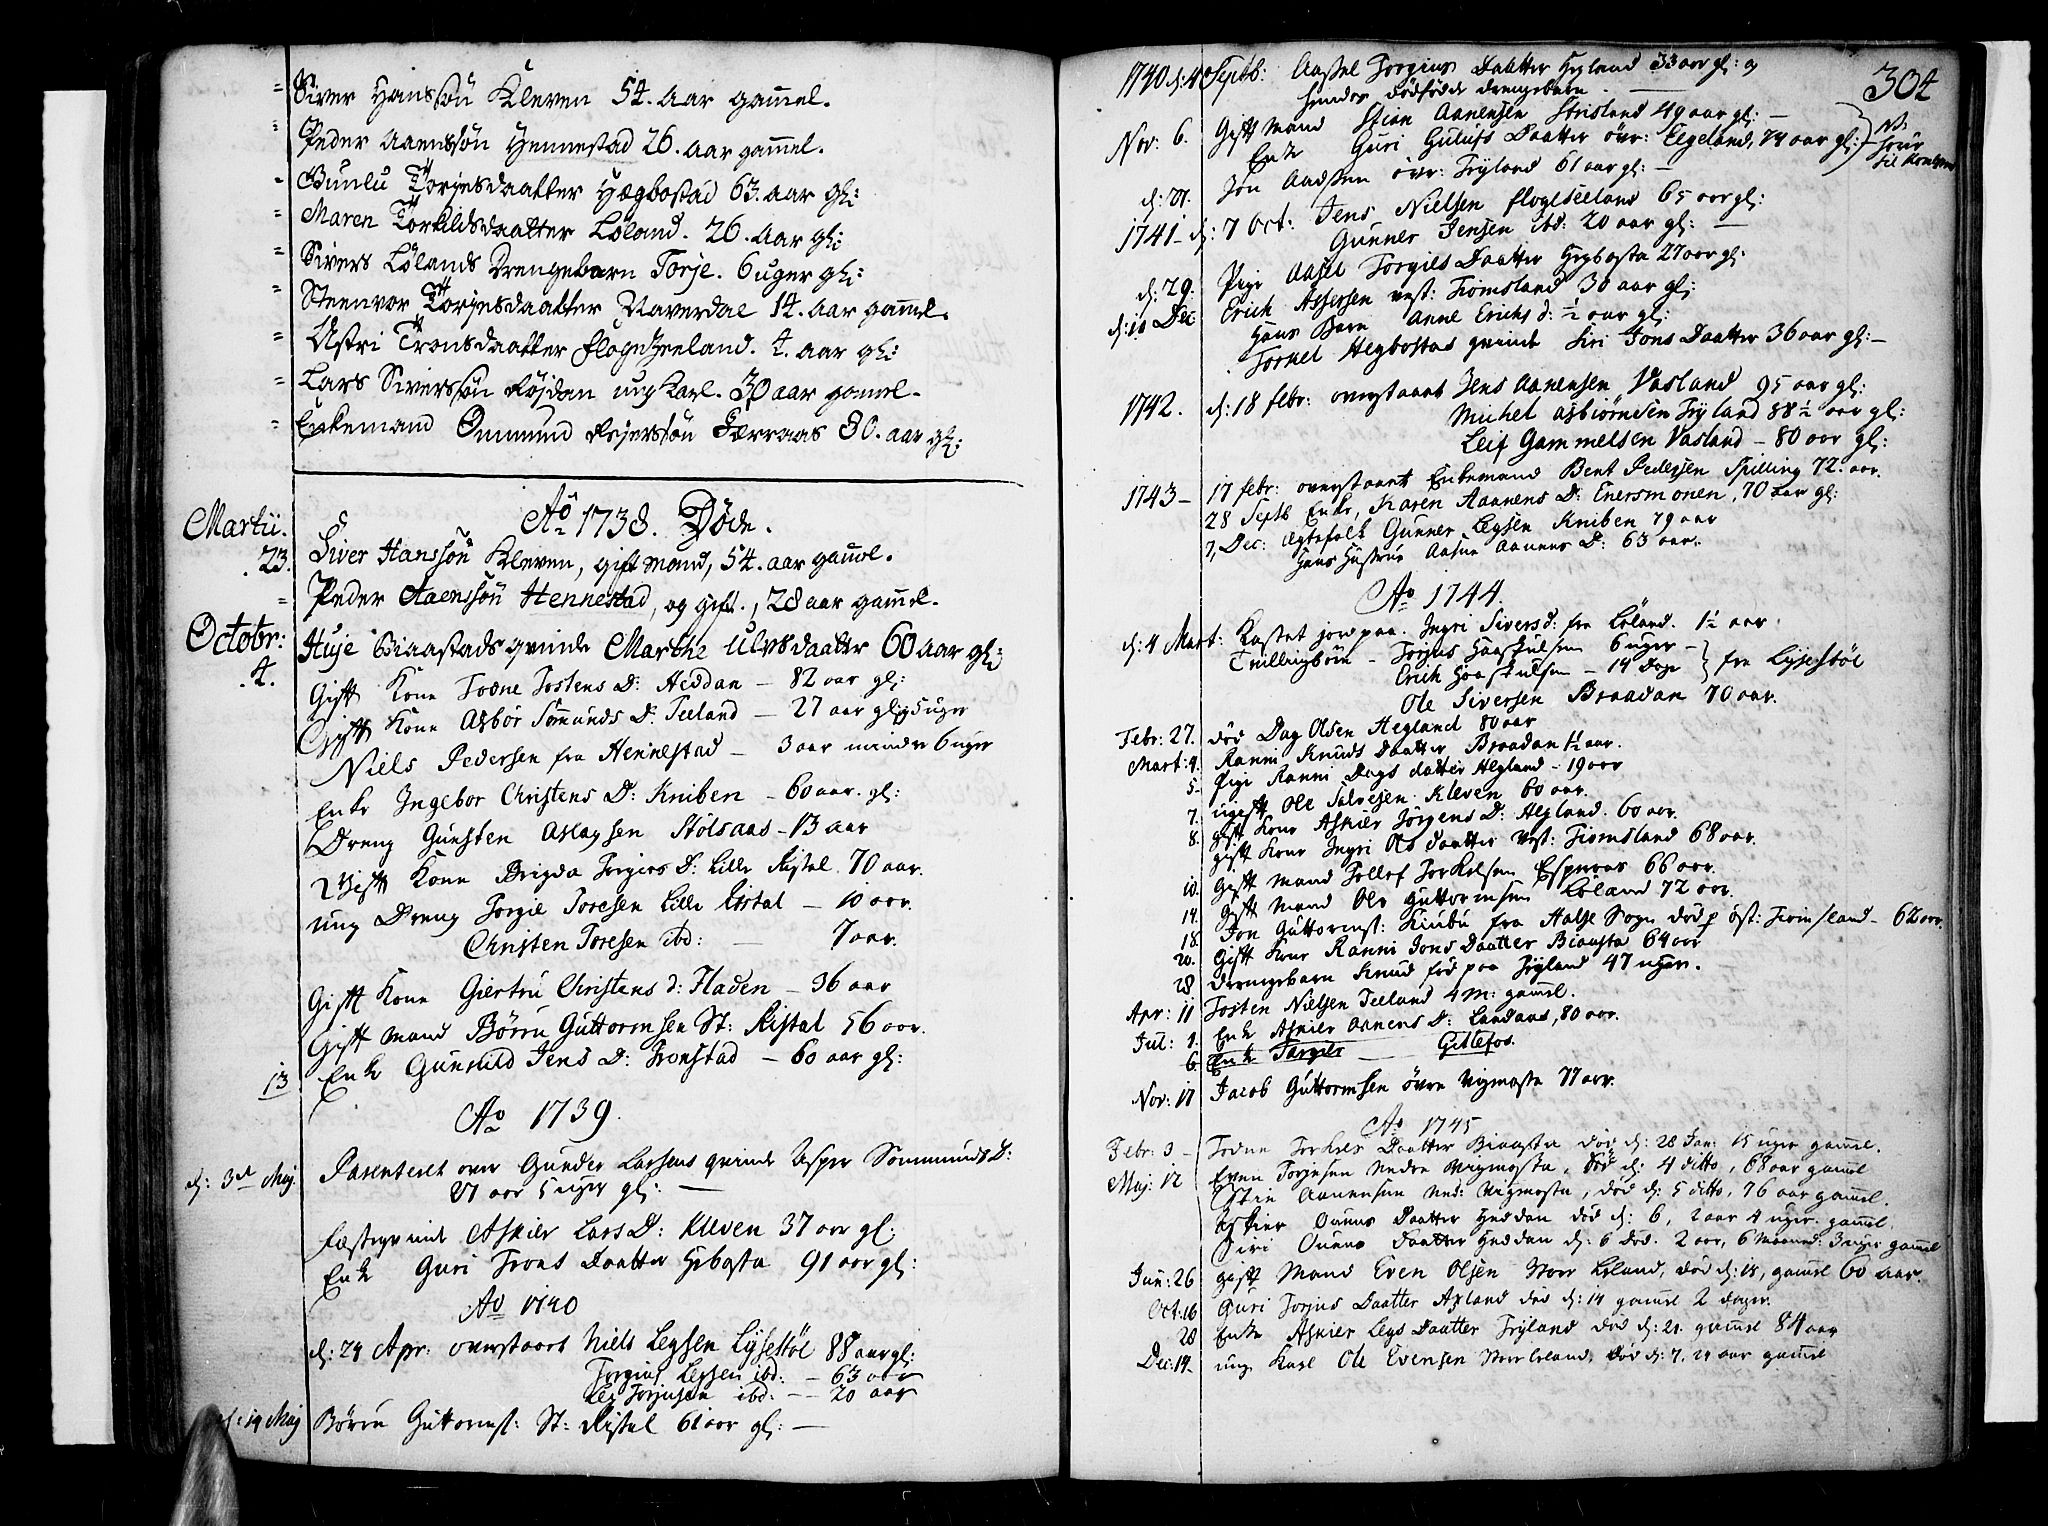 = Siver Hanssøn Kleven 54. aar gamel.
= Peder Aaenssøn Hennestad 26. aar gamel.
- Gunlu Torjesdaatter Hægbostad 63. aar gl:
= Maren Torkildsdaatter Løland. 26. aar gl:
= Sivers Lølands Drengebarn Torje. 6 uger gl:
= Steenvor Torjesdaatter Naverdal 14. aar gamel.
= Astri Tronsdaatter Flogeheeland. 4. aar gl:
= Lars Siverssøn Røjdan ung Karl. 30 aar gamel.
= Enkemand Ommund Rejerssøn Færraas 80. aar gl:
Ao 1738. Døde.
Martii. 23. Siver Hanssøn Kleven, gift mand, 54. aar gamel.
= Peder Aaenssøn Hennestad, og gift., 28 aar gamel.
Octobr: 4. Huje Biaastads qvinde Marthe Ulvsdaatter 60 aar gl:
Gift Kone Todne Tostens D: Heddan – 82 aar gl:
Gift Kone Asbor Sømunds D: Teeland – 27 aar gl: 5 uger
Niels Pedersen fra Hennestad – 3 aar mindre 6 uger
Enke Ingebor Christens D: Kniben – 60 aar. gl:
Dreng Gunsten Aslagsen Stølsaas – 13 aar
Gift Kone Brigda Torgiers D: Lille Ristal 70 aar.
ung Dreng Torgie Toresen Lille Ristal – 10 aar.
Christen Toresen ibd: – 7 aar.
Gift Kone Giertru Christens d: Haden – 36 aar
Gift mand Børru Guttormsen St: Ristal 56 aar.
13 Enke Gunhild Jens D: Tronstad – 60 aar gl:
Ao 1739.
d: 3de Maj Parenteret over Gunder Larsens qvinde Asper Sommunds D:
27 aar 5 uger gl: –
Fæsteqvinde Askier Lars D: Kleven 37 aar gl:
Enke Guri Trons Daatter Hebosta 91 aar gl:
Ao 1740
d: 24 Apr: overstaart Niels Legsen Lysestøl 88 aar gl:
Torgius Legsen ibd: – 63 aar
Leg Torjusen ibd: – 20 aar
d: 14 Maj Børru Guttormss: St: Ristel 61 aar gl: –
304
1740 d: 4 Septb: Aassel Torgius Daatter Hegland 33 aar gl: og
hendes dødfødde drengebarn.
Nov: 6. Gift Mand Stian Aanensen Strisland 49 aar gl: –
Enke Guri Gulufs Daatter øvr: Eegeland, 74 aar gl:
d: 21. Jon Aadssen øvr: Tryland 61 aar gl: –
1741 – d: 7 Oct: Jens Nielsen Flogeseeland 65 aar gl:
Gunner Jensen ibd: 20 aar gl: –
d: 29. Pige Aasel Torgils Daatter Hegbosta 27 aar gl:
d: 10 Dec Erich Assersen vest: Fiomsland 30 aar gl:
Hans Barn Anne Erichs d: ½ aar gl:
Torkel Hegbostas qvinde Siri Jons Daatter 36 aar gl: –
1742. d: 18 febr: overstaart Jens Aanensen Vasland 95 aar gl:
Michel Asbiørnsen Tryland 88 ½ aar gl:
Leif Gammelsen Vasland – 80 aar gl:
1743 – 17 febr: overstaart Enkemand Bent Pedersen Spilling 72 aar.
28 Septb Enke, Karen Aanens D: Enersmonen, 70 aar gl:
7, Dec: Ægtefolk Gunner Legsen Kniben 79 aar
Hans Hustrue Aasne Aanens D: 63 aar.
Ao 1744.
d: 4 Mart: Kastet jord paa. Ingri Sivers d: fra Løland. 1½ aar.
Tvillingbørn – Torgus Haaskulsen 6 uger –
Erich Haaskulsen – 14 Dage } fra Lysestøl
Ole Siversen Braadan 70 aar.
Febr: 27. død Dag Olsen Hegland 80 aar
Mart: 4. Ranni Knuds Daatter Braadan 1½ aar.
5. Pige Ranni Dags datter Hegland – 19 aar
7. ugift Ole Salvesen Kleven 60 aar.
8. gift Kone Askier Jørgens D: Hegland. 60 aar.
gift Kone Ingri Ols daatter Vest: Fiomsland 68 aar.
10. Gift Mand Tollof Torkelsen Espenes 66 aar.
14. Gift Mand Ole Guttormsen Løland 72 aar.
18. Jon Guttormss: Kimbu fra Halse Sogn død p øst: Fiomsland – 62 aar.
20. Gift Kone Ranni Jons Daatter Biaasta 64 aar
28 Drengebarn Knud fød paa Tryland 47 uger.
Apr: 11 Tosten Nielsen Teeland 4 M: gamel.
Jul: 1. Enke Askier Aanens D: Landaas, 80 aar.
6. Enke Torgier – Gitlefos.
Nov: 17 Jacob Guttormsen øvre Vigmosta 77 aar.
Ao 1745
Febr: 3 – Todne Torkels Daatter Biaasta død d: 28 Jan: 15 uger gamel.
Maj: 12 Even Torjusen Nedre Vigmosta, død d: 4 ditto, 68 aar gamel
Stie Aanensen Ned: Vigmosta, død d: 5 ditto, 76 aar gamel.
Askier Ounus Daatter Heddan død d: 6, 2 aar 4 uger gamel.
Siri Ounus Daatter Heddan d: 6 død. 2 aar, 6 Maaned: 3 uger gamel
Jun: 26 gift Mand Even Olsen Norr Løland, død d: 18, gamel 60 aar.
Oct: 16 Guri Torjus Daatter Axland død d: 14 gamel 2 dager.
28 Enke Askier Legs Daatter Tryland død d: 21. gamel 84 aar
Dec: 14. ung Karl Ole Evensen Norr Løland, død d: 7, 24 aar gamel